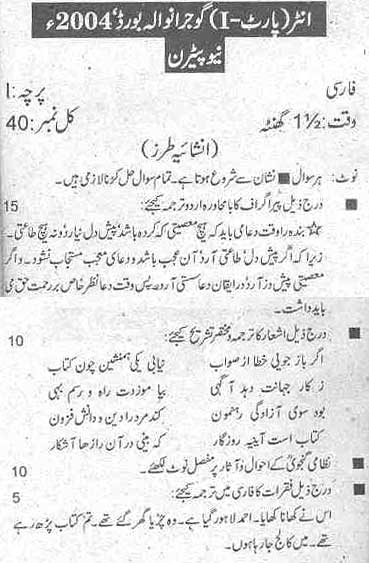 انٹر (پارٹ-I) گوجرانوالہ بورڈ، 2004ء
نیو پیٹرن
فارسی پرچہ: I
وقت: 1½ گھنٹہ کل نمبر: 40
(انشائیہ طرز)
نوٹ: ہر سوال ■ نشان سے شروع ہوتا ہے۔ تمام سوال حل کرنا لازمی ہیں۔
■ درج ذیل پیراگراف کا بامحاورہ اردو ترجمہ کیجئے: 15
☆ بندہ را وقت دعا می باید کہ ہیچ معصیتی کہ کردہ باشد، پیش دل نیارد و نہ ہیچ طاعتی۔
زیرا کہ اگر پیش دل، طاعتی آرد آن عجب باشد و دعای معجب مستجاب نشود۔ و اگر
معصیتی پیش دل آرد در ایقان دعا سستی آرد۔ پس وقت دعا نظر خاص بر رحمت حق می
باید داشت۔
■ درج ذیل اشعار کا ترجمہ و مختصر تشریح کیجئے: 10
اگر باز جویی خطا از صواب نیابی یکی ہمنشین چون کتاب
ز کار جہانت دہد آگہی بیا موزدت راہ و رسم بہی
بود سوی آزادگی رہنمون کند مرد را دین و دانش فزون
کتاب است آیینہ روزگار کہ بینی در آن رازہا آشکار
■ نظامی گنجوی کے احوال و آثار پر مفصل نوٹ لکھئے۔ 10
■ درج ذیل فقرات کا فارسی میں ترجمہ کیجئے: 5
اس نے کھانا کھایا۔ احمد لاہور گیا ہے۔ وہ چڑیا گھر گئے تھے۔ تم کتاب پڑھ رہے
تھے۔ میں کالج جا رہا ہوں۔